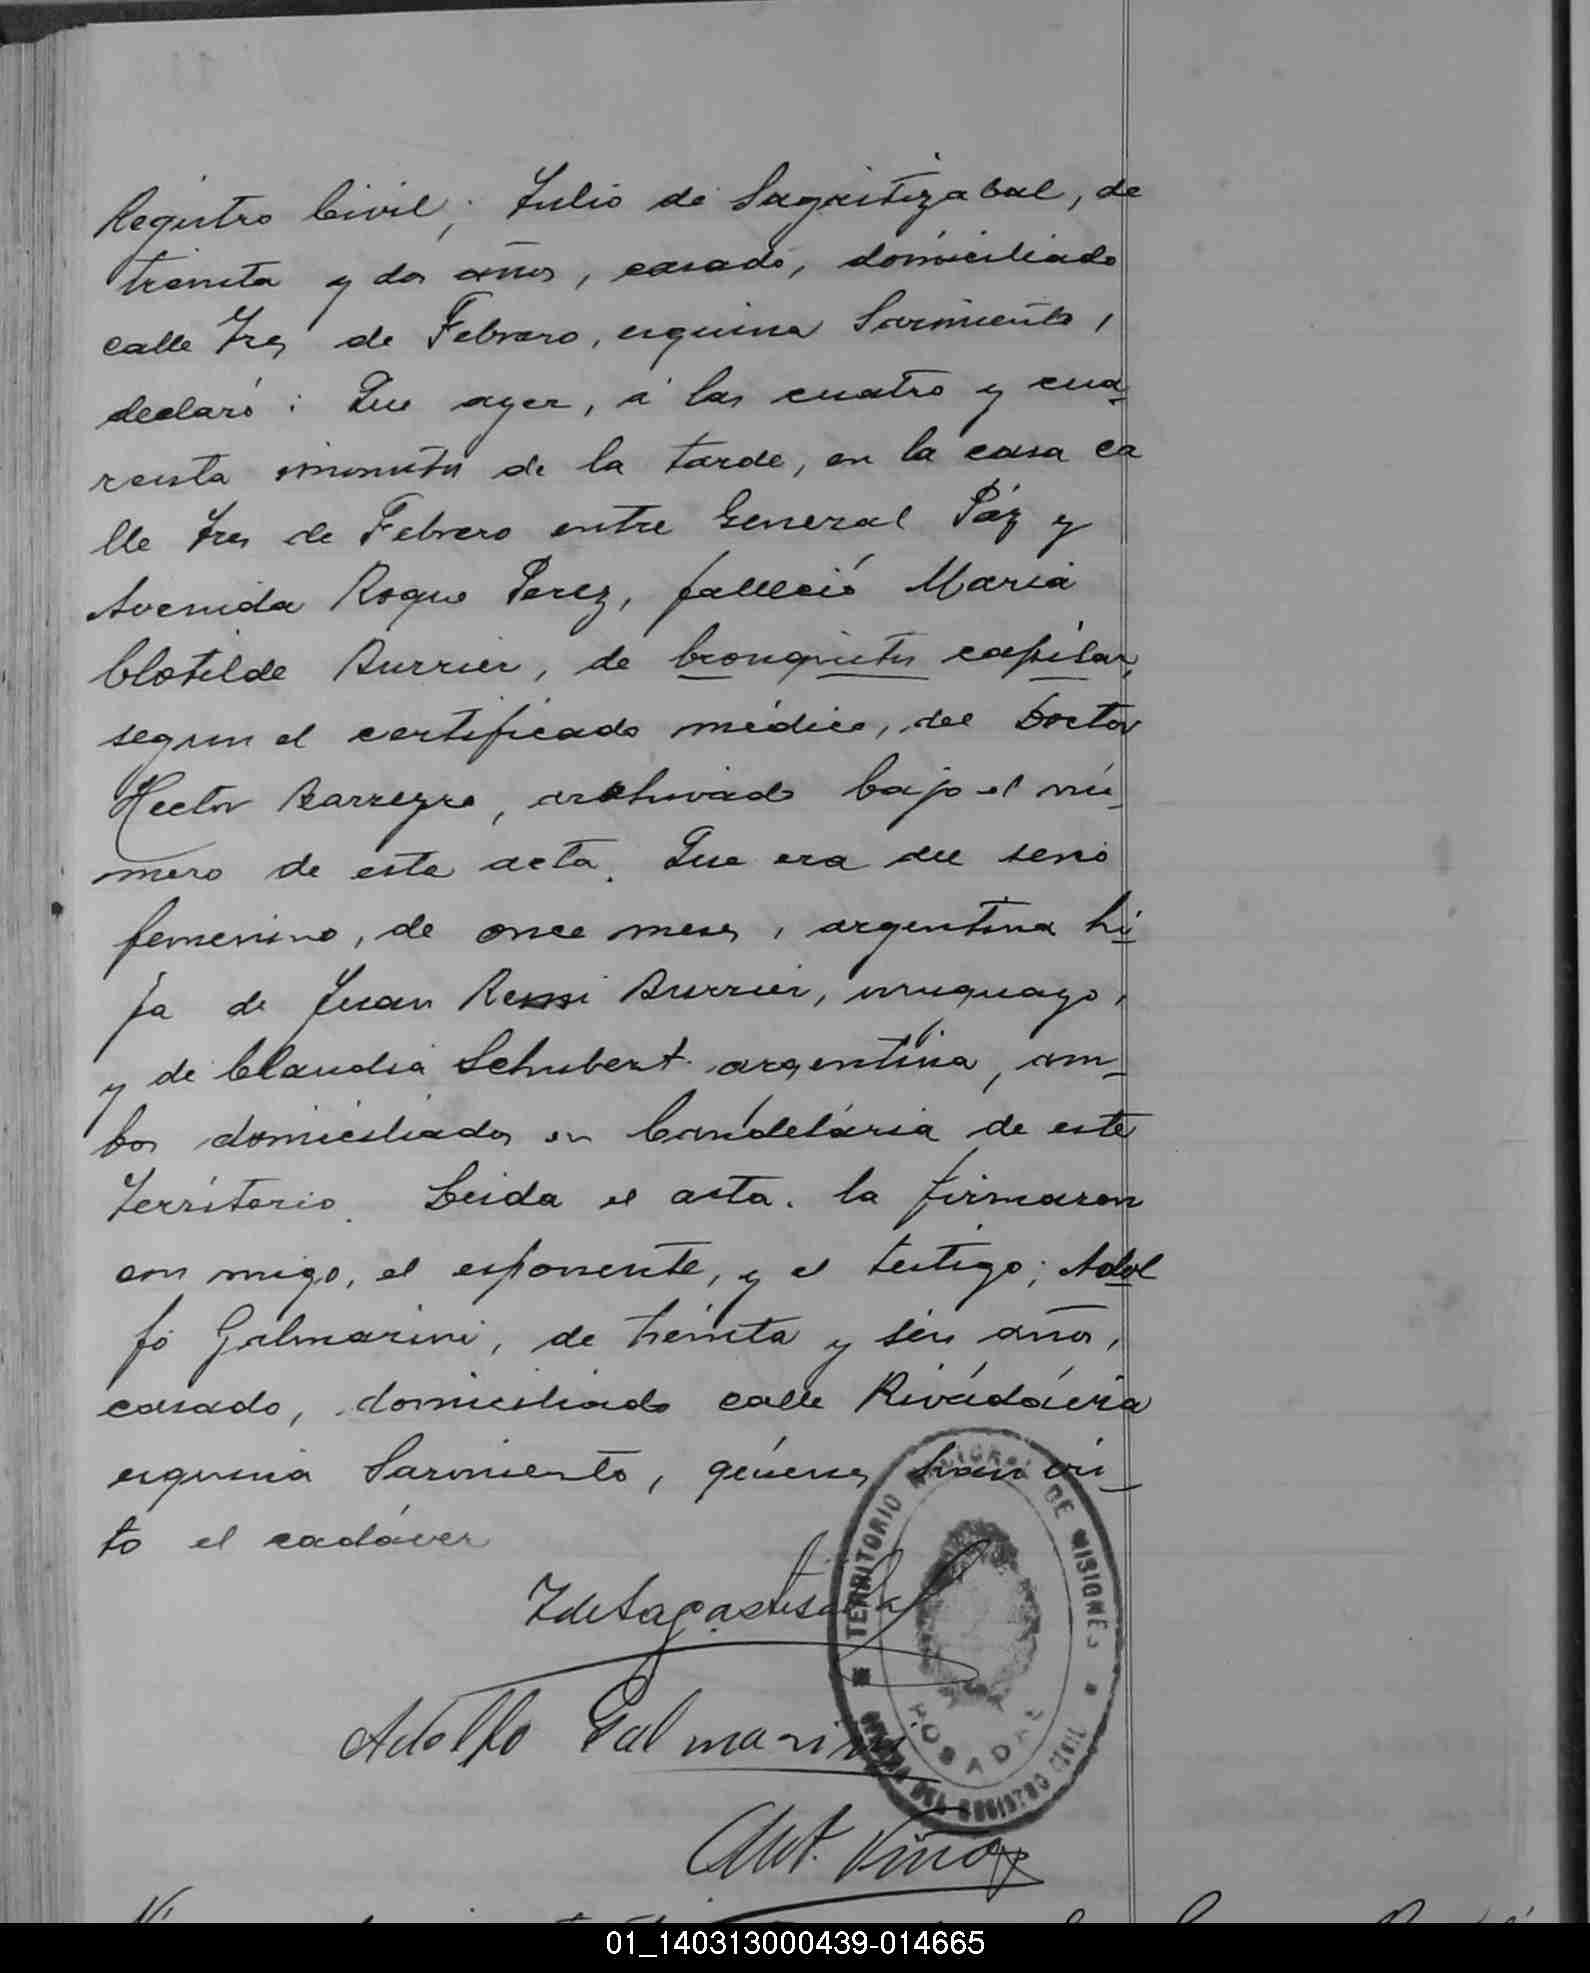 Registro Civil; Julio de Sagastizabal, de
treinta y dos años, casado, domiciliado
calle Tres de Febrero, esquina Sarmiento,
declaró: Que ayer, á las cuatro y cua-
renta minutos de la tarde, en la casa ca
lle Tres de Febrero entre General Páz y
Avenida Roque Perez, falleció Maria
Clotilde Burrier, de bronquitis capilar,
segun el certificado médico, del Doctor
Hector Barreyro, archivado bajo el nú-
mero de este acta. Que era del sexo
femenino, de once meses, argentina hi-
ja de Juan Remi Burrier, uruguayo,
y de Claudia Schubert argentina, am-
bos domiciliados en Candelaria de este
Territorio. Leida el acta. la firmaron
con migo, el esponente, y el testigo; Adol
fo Galmarini, de treinta y seis años,
casado, domiciliado calle Rivadávia
esquina Sarmiento, quienes han vis-
to el cadáver
J de Sagastizabal
Adolfo Galmarini
Ant. Viñas
TERRITORIO NACIONAL DE MISIONES
POSADAS
DEL REGISTRO CIVIL
01_140313000439-014665